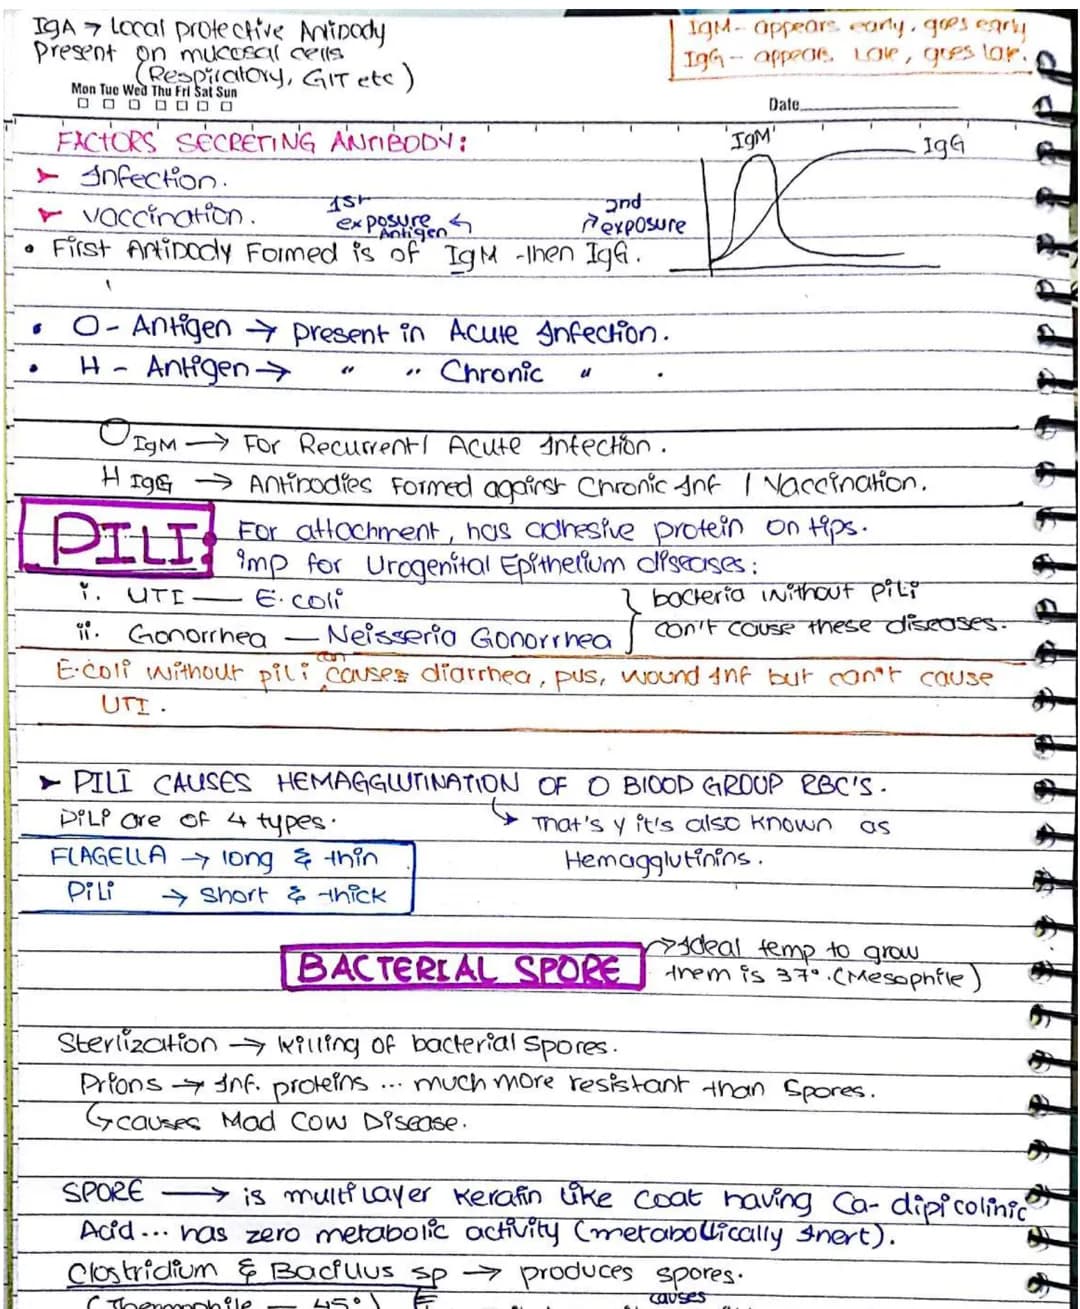 IgA → Local protective Antibody
Present on mucosal cells
(Respiratory, GIT etc)
IgM - appears early, goes early
IgG - appears late, goes late.
Mon Tue Wed Thu Fri Sat Sun
Date
FACTORS SECRETING ANTIBODY:
➤ Infection.
➤ vaccination.
1st exposure Antigen
2nd exposure
• First Antibody Formed is of IgM then IgG.
IgM
IgG
• O - Antigen → present in Acute Infection.
• H - Antigen → " " Chronic " .
O IgM → For Recurrent / Acute Infection.
H IgG → Antibodies formed against Chronic Inf / Vaccination.
PILI: For attachment, has adhesive protein on tips.
imp for Urogenital Epithelium diseases:
i. UTI — E.coli
ii. Gonorrhea — Neisseria Gonorrhea
bacteria without pili
can't cause these diseases.
E.coli without pili can causes diarrhea, pus, wound Inf but can't cause
UTI.
➤ PILI CAUSES HEMAGGLUTINATION OF O BLOOD GROUP RBC'S.
Pili are of 4 types.
↳ That's y it's also known as
Hemagglutinins.
FLAGELLA → long & thin
Pili → Short & thick
BACTERIAL SPORE
→ Ideal temp to grow
them is 37°. (Mesophile)
Sterlization → killing of bacterial spores.
Prions → Inf. proteins ... much more resistant than spores.
↳ causes Mad Cow Disease.
SPORE → is multilayer keratin like coat having Ca- dipicolinic
Acid... has zero metabolic activity (metabollically Inert).
Clostridium & Bacillus sp → produces spores.
(Thermophile — 45°)
causes